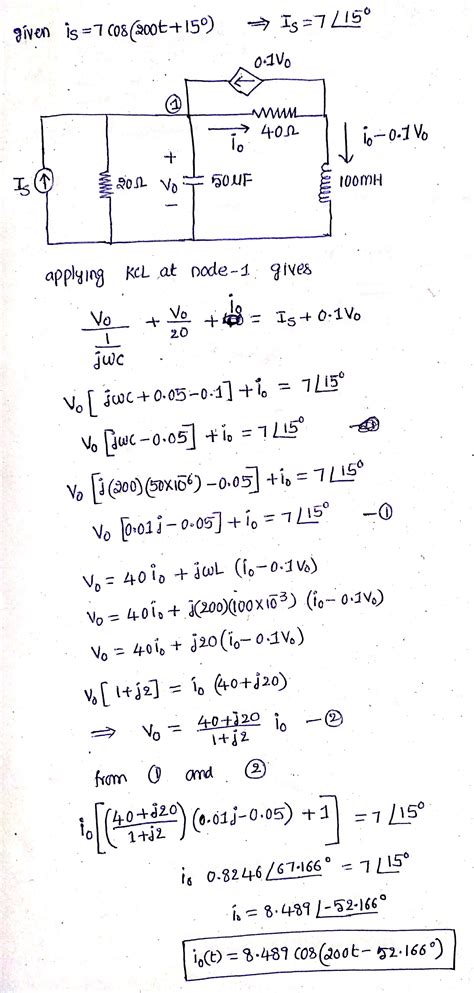 given is = 7 cos(200t+15°) ⇒ Is = 7∠15°
0.1Vo
①
40Ω
io
io-0.1Vo
Is
20Ω
+
Vo
-
50μF
100mH
applying KCL at node-1 gives
Vo/(1/jωc) + Vo/20 + io = Is + 0.1Vo
Vo[jωc+0.05-0.1] + io = 7∠15°
Vo[jωc-0.05] + io = 7∠15°
Vo[j(200)(50×10⁻⁶)-0.05] + io = 7∠15°
Vo[0.01j-0.05] + io = 7∠15° —①
Vo = 40io + jωL (io-0.1Vo)
Vo = 40io + j(200)(100×10⁻³) (io-0.1Vo)
Vo = 40io + j20(io-0.1Vo)
Vo[1+j2] = io (40+j20)
⇒ Vo = (40+j20)/(1+j2) io —②
from ① and ②
io[((40+j20)/(1+j2))(0.01j-0.05)+1] = 7∠15°
io 0.8246∠67.166° = 7∠15°
io = 8.489∠-52.166°
io(t) = 8.489 cos(200t-52.166°)